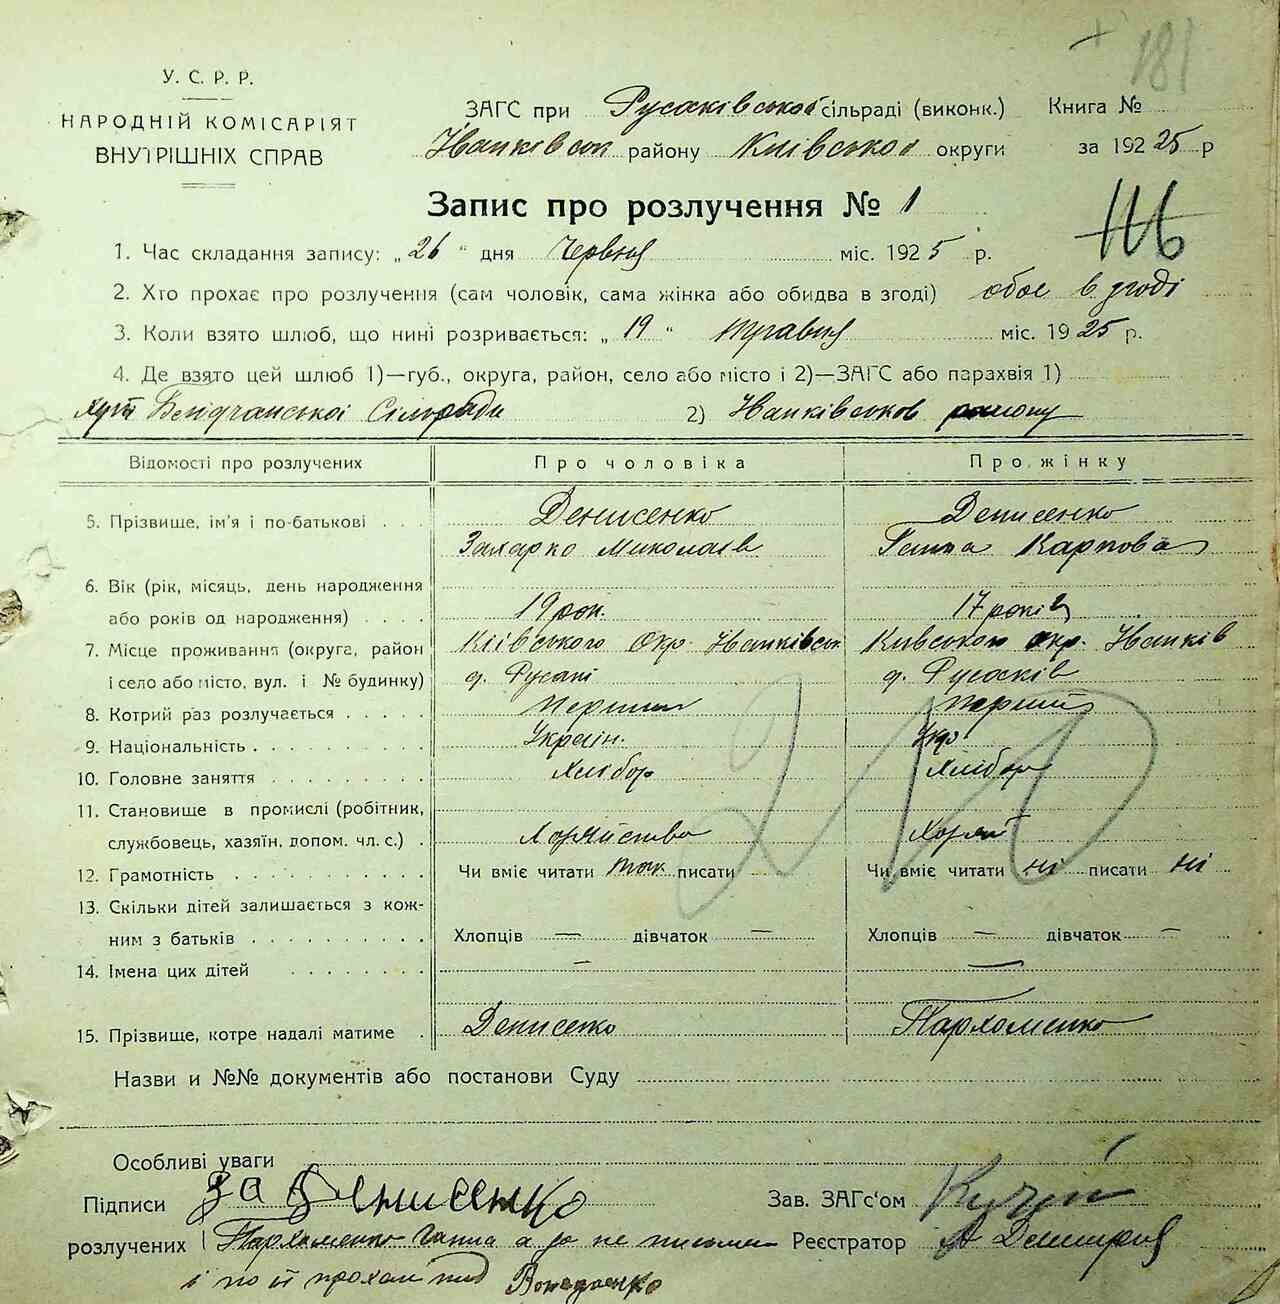 181
У. С. Р. Р.
НАРОДНІЙ КОМІСАРІЯТ
ВНУТРІШНІХ СПРАВ
ЗАГС при Русаківськоі сільраді (виконк.) Книга №
району Київськоі округи за 1925 р
Запис про розлучення № 1
116
1. Час складання запису: „26" дня Червня міс. 1925 р.
2. Хто прохає про розлучення (сам чоловік, сама жінка або обидва в згоді) обоє в згоді
3. Коли взято шлюб, що нині розривається: „19" травня міс. 1925 р.
4. Де взято цей шлюб 1)—губ., округа, район, село або місто і 2)—ЗАГС або парахвія 1)
Сільради 2) району
Відомості про розлучених Про чоловіка Про жінку
5. Прізвище, ім'я і по-батькові Денисенко Денисенко
Захарко Миколаєв Ганна Карпова
6. Вік (рік, місяць, день народження
або років од народження) 19 рок. 17 років
7. Місце проживання (округа, район Київського Окр. Київською окр. Іванків
і село або місто, вул. і № будинку) д. д. Русаків
8. Котрий раз розлучається Перший перший
9. Національність Украін. Укр
10. Головне заняття Хлібор Хлібор
11. Становище в промислі (робітник,
службовець, хазяїн, допом. чл. с.)
12. Грамотність Чи вміє читати так писати Чи вміє читати ні писати ні
13. Скільки дітей залишається з кож-
ним з батьків Хлопців — дівчаток — Хлопців — дівчаток —
14. Імена цих дітей — —
15. Прізвище, котре надалі матиме Денисенко Пархоменко
Назви и №№ документів або постанови Суду
Особливі уваги
Підписи Денисенко Зав. ЗАГс'ом
розлучених Пархоменко Ганна а за не письмен Реєстратор
і по її прохан